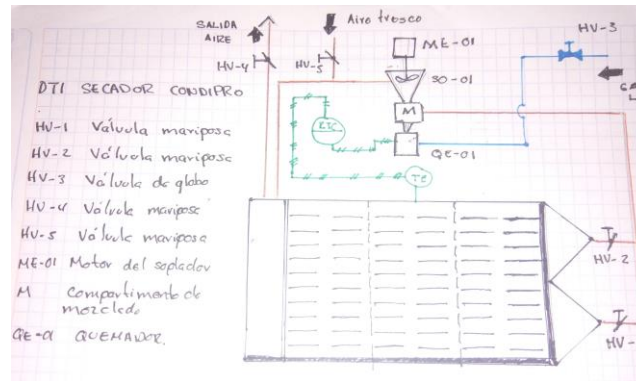 SALIDA
AIRE
Airo fresco
HV-4
HV-5
ME-01
SO-01
M
QE-01
HV-3
TC
HV-2
HV-
DTI SECADOR CONDIPRO
HV-1 Válvula mariposa
HV-2 Válvula mariposa
HV-3 Válvula de globo
HV-4 Válvula mariposa
HV-5 Válvula mariposa
ME-01 Motor del soplador
M Compartimento de
mezclado
QE-01 QUEMADOR.